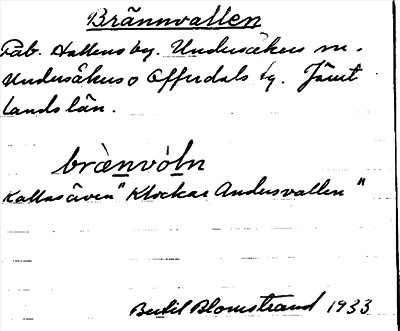 Brännvallen
Fäb. Hallens by. Undersåkers sn.
Undersåkers o Offerdals tg. Jämt
lands län.
brὰnvóln
Kallas även "Klockar Andersvallen"
Bertil Blomstrand 1933